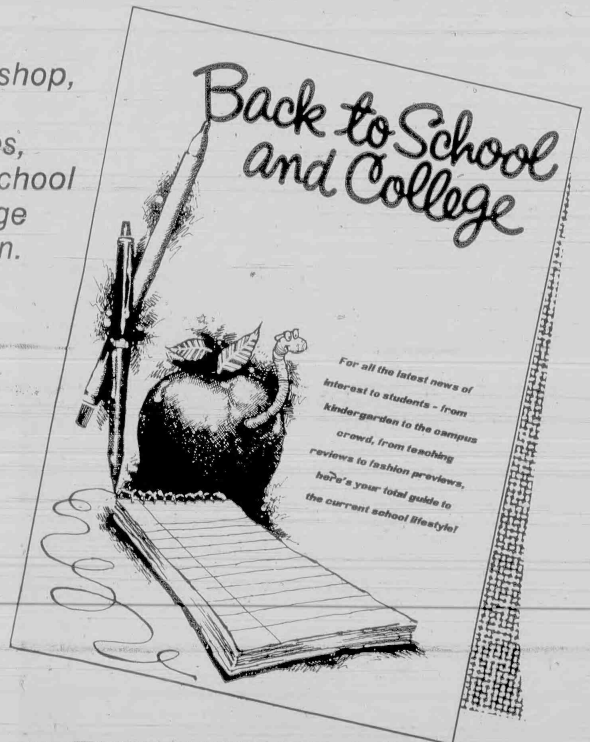 shop,
s,
chool
ge
n.
Back to School
and College
For all the latest news of
interest to students - from
kindergarden to the campus
crowd, from teaching
reviews to fashion previews,
here's your total guide to
the current school lifestyle!